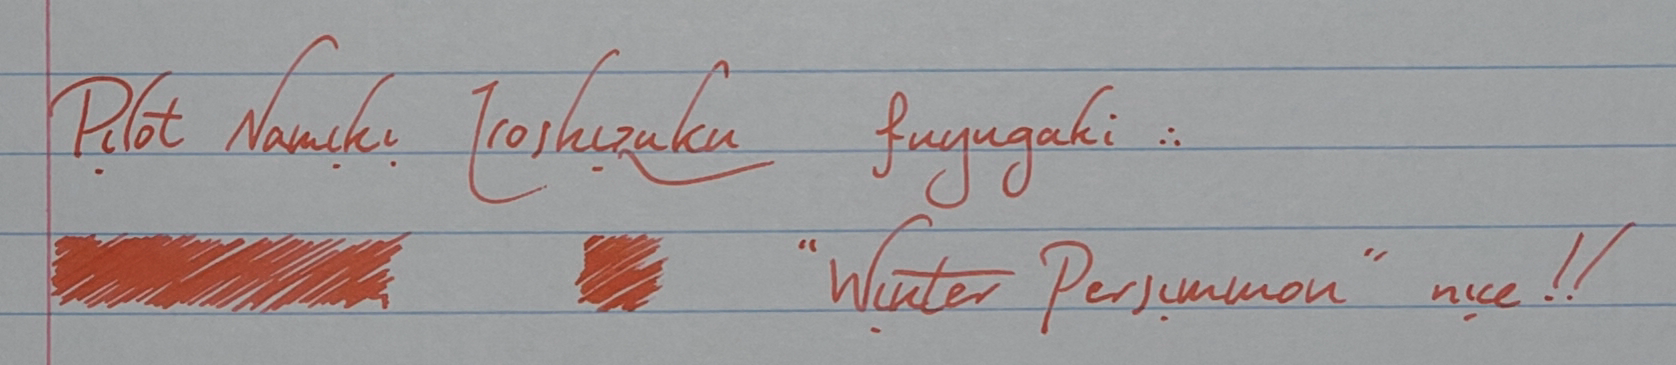 Pilot Namiki Iroshizuku fuyugaki ∴
"Winter Persimmon" nice!!